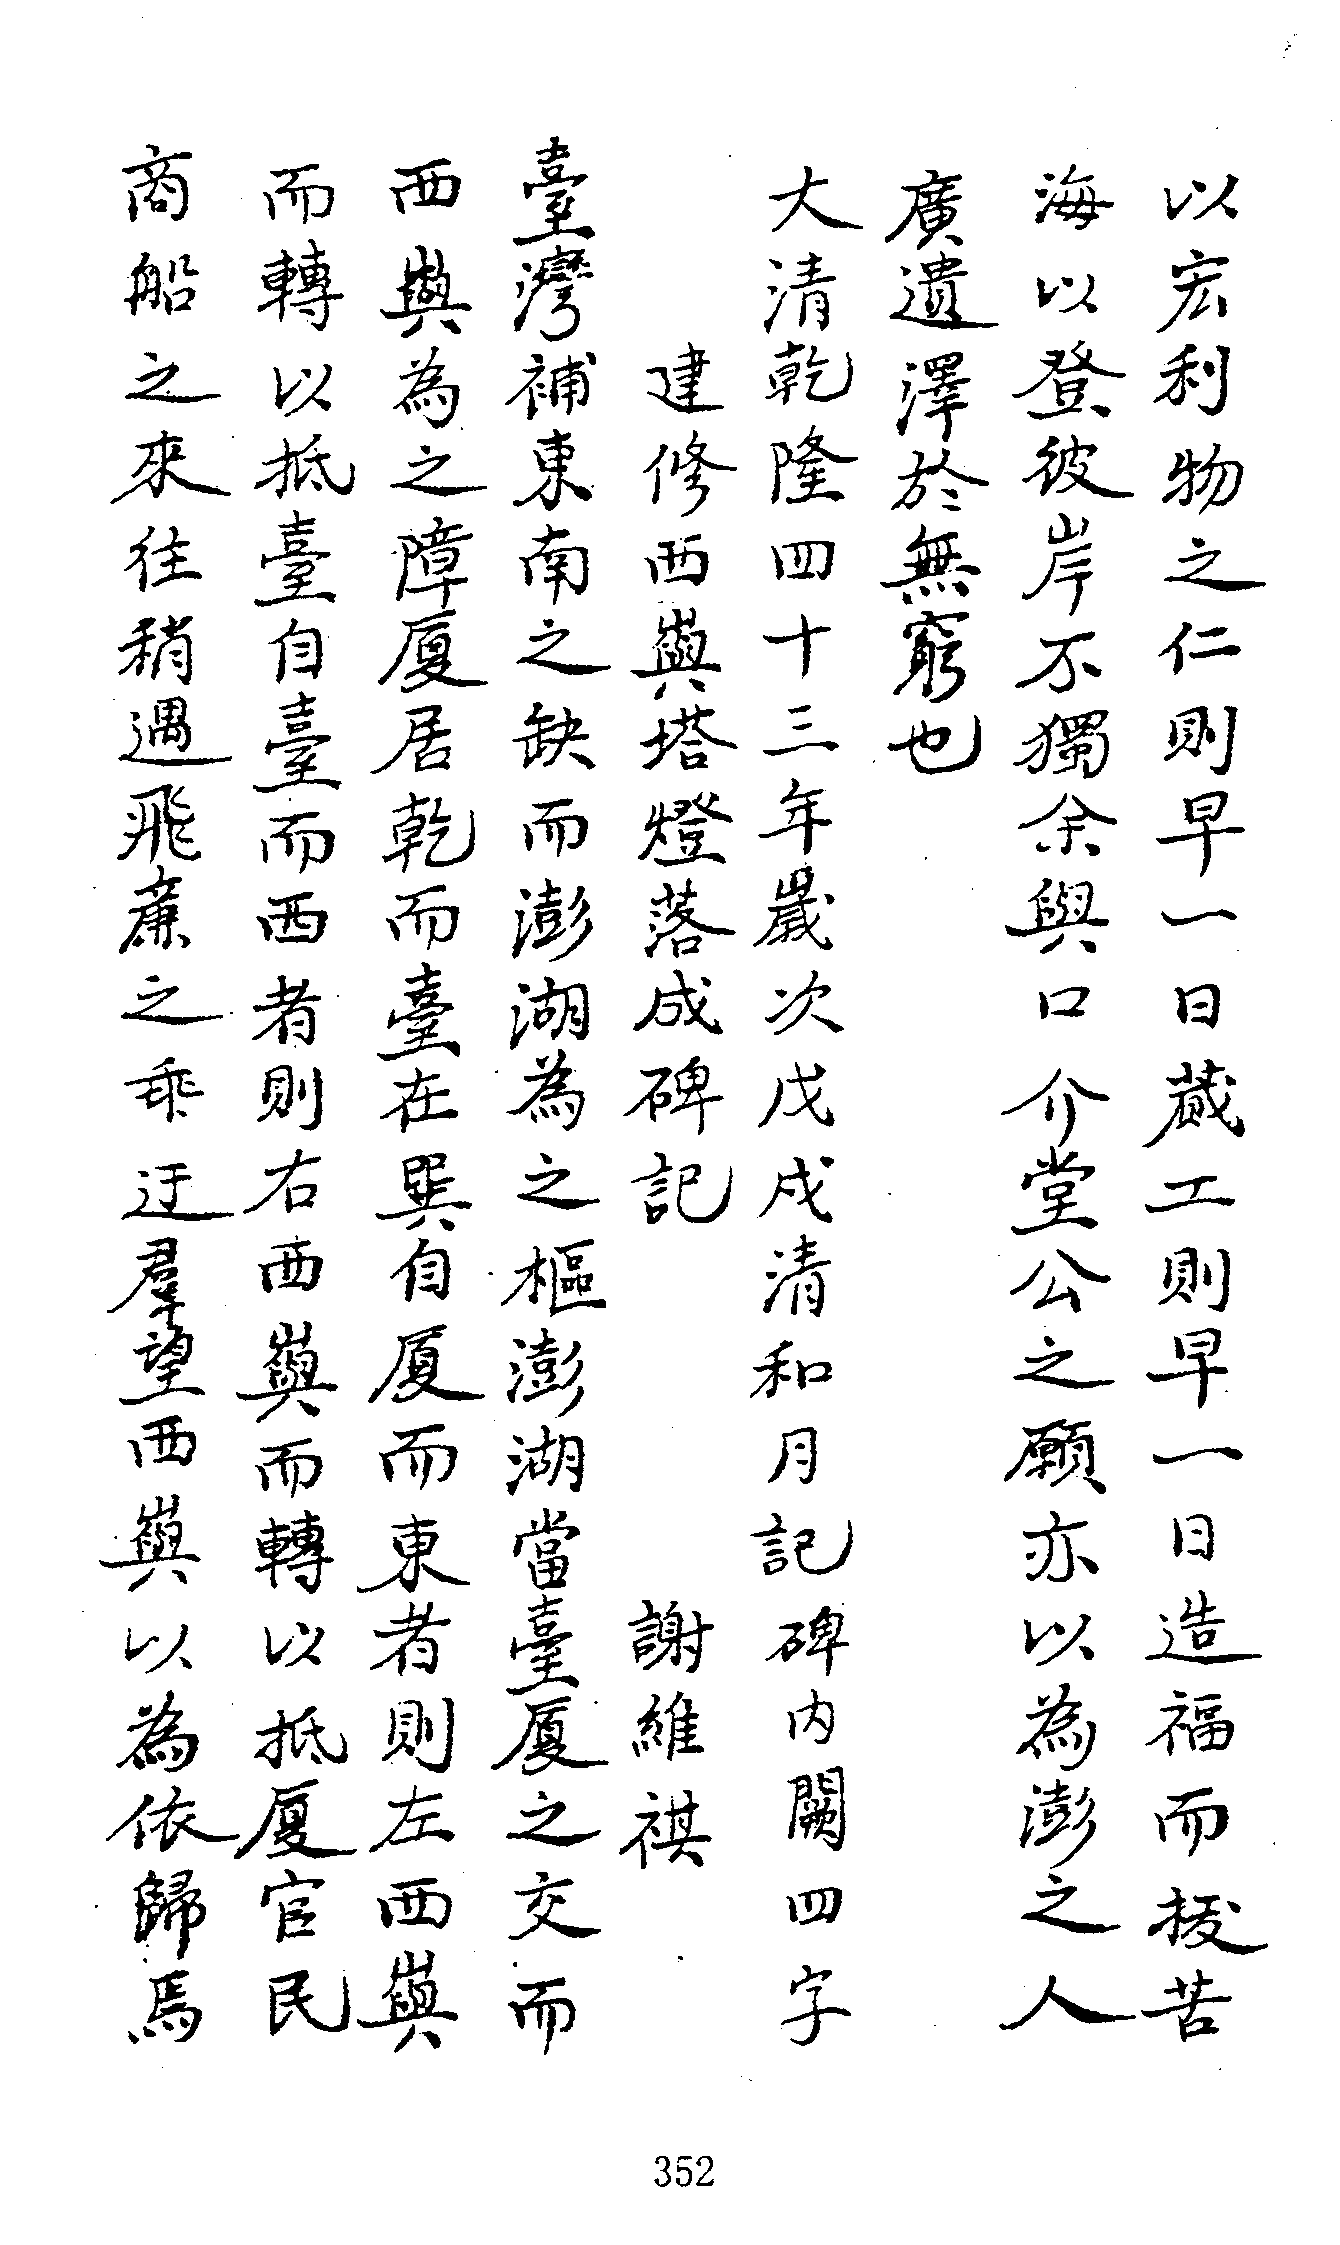 以宏利物之仁則早一日蕆工則早一日造福而拔苦
海以登彼岸不獨余與口介堂公之願亦以為澎之人
廣遺澤於無窮也
大清乾隆四十三年歲次戊戌清和月記碑內闕四字
建修西嶼塔燈落成碑記 謝維祺
臺灣補東南之缺而澎湖為之樞澎湖當臺厦之交而
西嶼為之障厦居乾而臺在巽自厦而東者則左西嶼
而轉以抵臺自臺而西者則右西嶼而轉以抵厦官民
商船之來往稍遇飛廉之乖迕羣望西嶼以為依歸焉
352